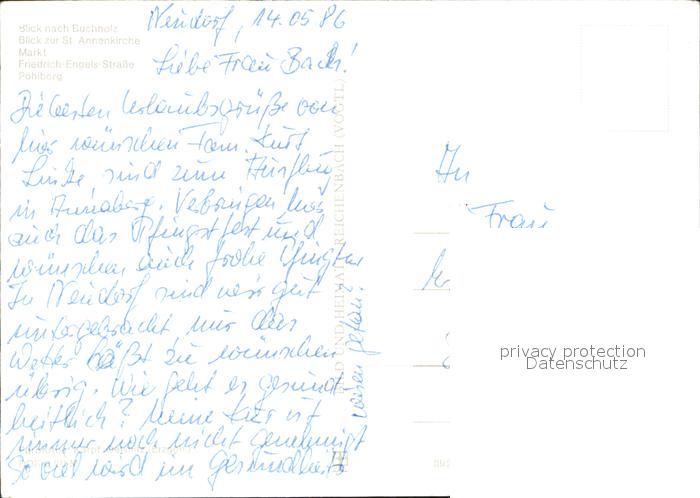 Blick nach Buchholz
Blick zur St. Annenkirche
Markt
Friedrich-Engels-Straße
Pöhlberg
Neudorf, 14.05 86
Liebe Frau Bach!
Die besten Urlaubsgrüße von
hier wünschen Fam. Kurt
Linke sind zum Ausflug
in Annaberg. Verbringen hier
auch das Pfingstfest und
wünschen auch frohe Pfingsten
In Neudorf sind wir gut
untergebracht nur das
Wetter läßt zu wünschen
übrig. Wie geht es gesund-
heitlich? Meine Kur ist
immer noch nicht genehmigt
So viel wird im Gesundheits
wesen getan?
BILD UND HEIMAT REICHENBACH (VOGTL)
An
Frau
privacy protection
Datenschutz